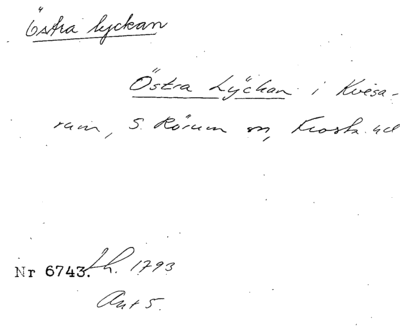 Östra lyckan
Östra Lyckan i Kvesa-
rum, S. Rörum sn, Frosta hd
Nr 6743. Lh. 1793
Ant 5.